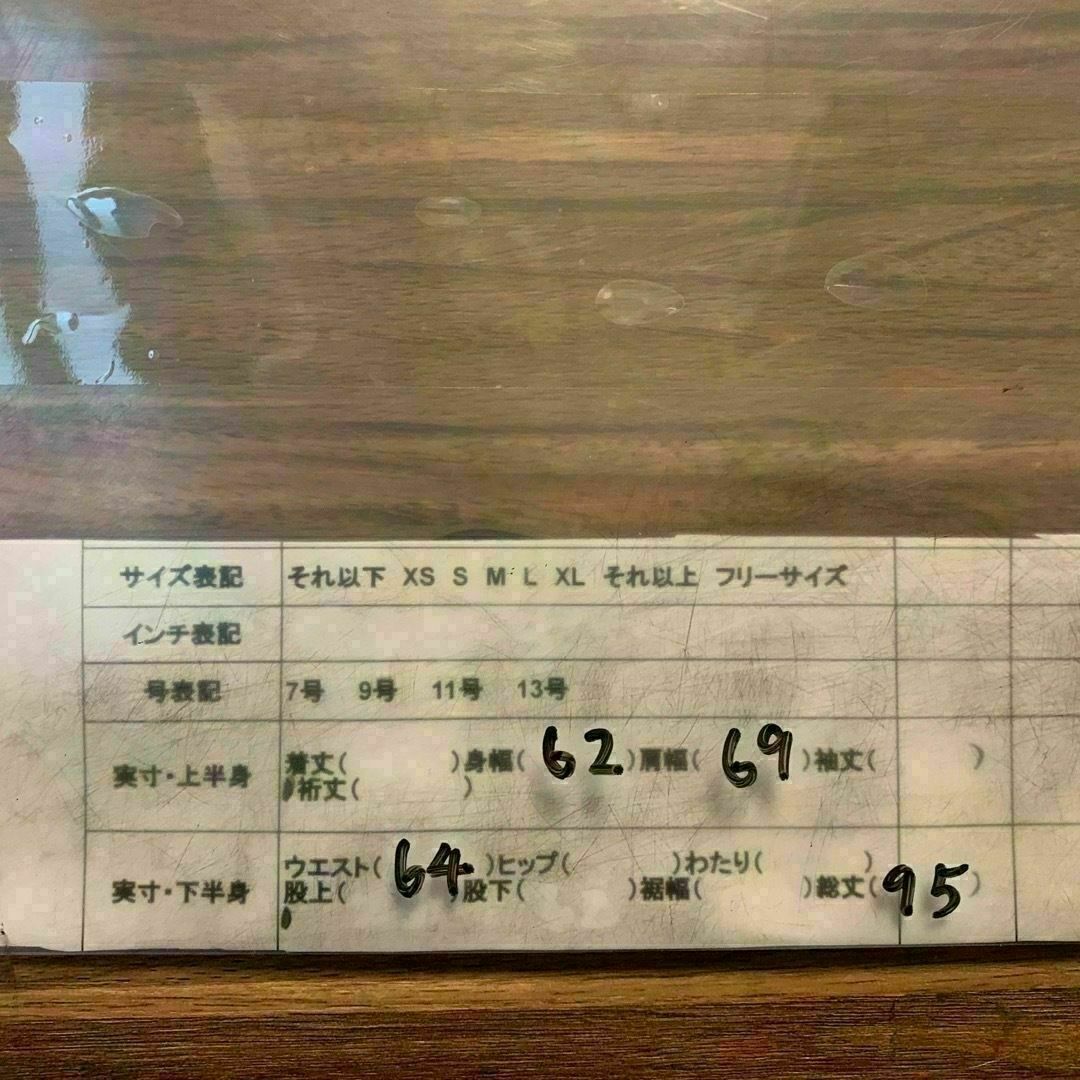 サイズ表記 それ以下 XS S M L XL それ以上 フリーサイズ
インチ表記
号表記 7号 9号 11号 13号
実寸・上半身 着丈( )身幅( 62 )肩幅( 69 )袖丈( )
裄丈( )
実寸・下半身 ウエスト( 64 )ヒップ( )わたり( )
股上( )股下( )裾幅( )総丈( 95 )